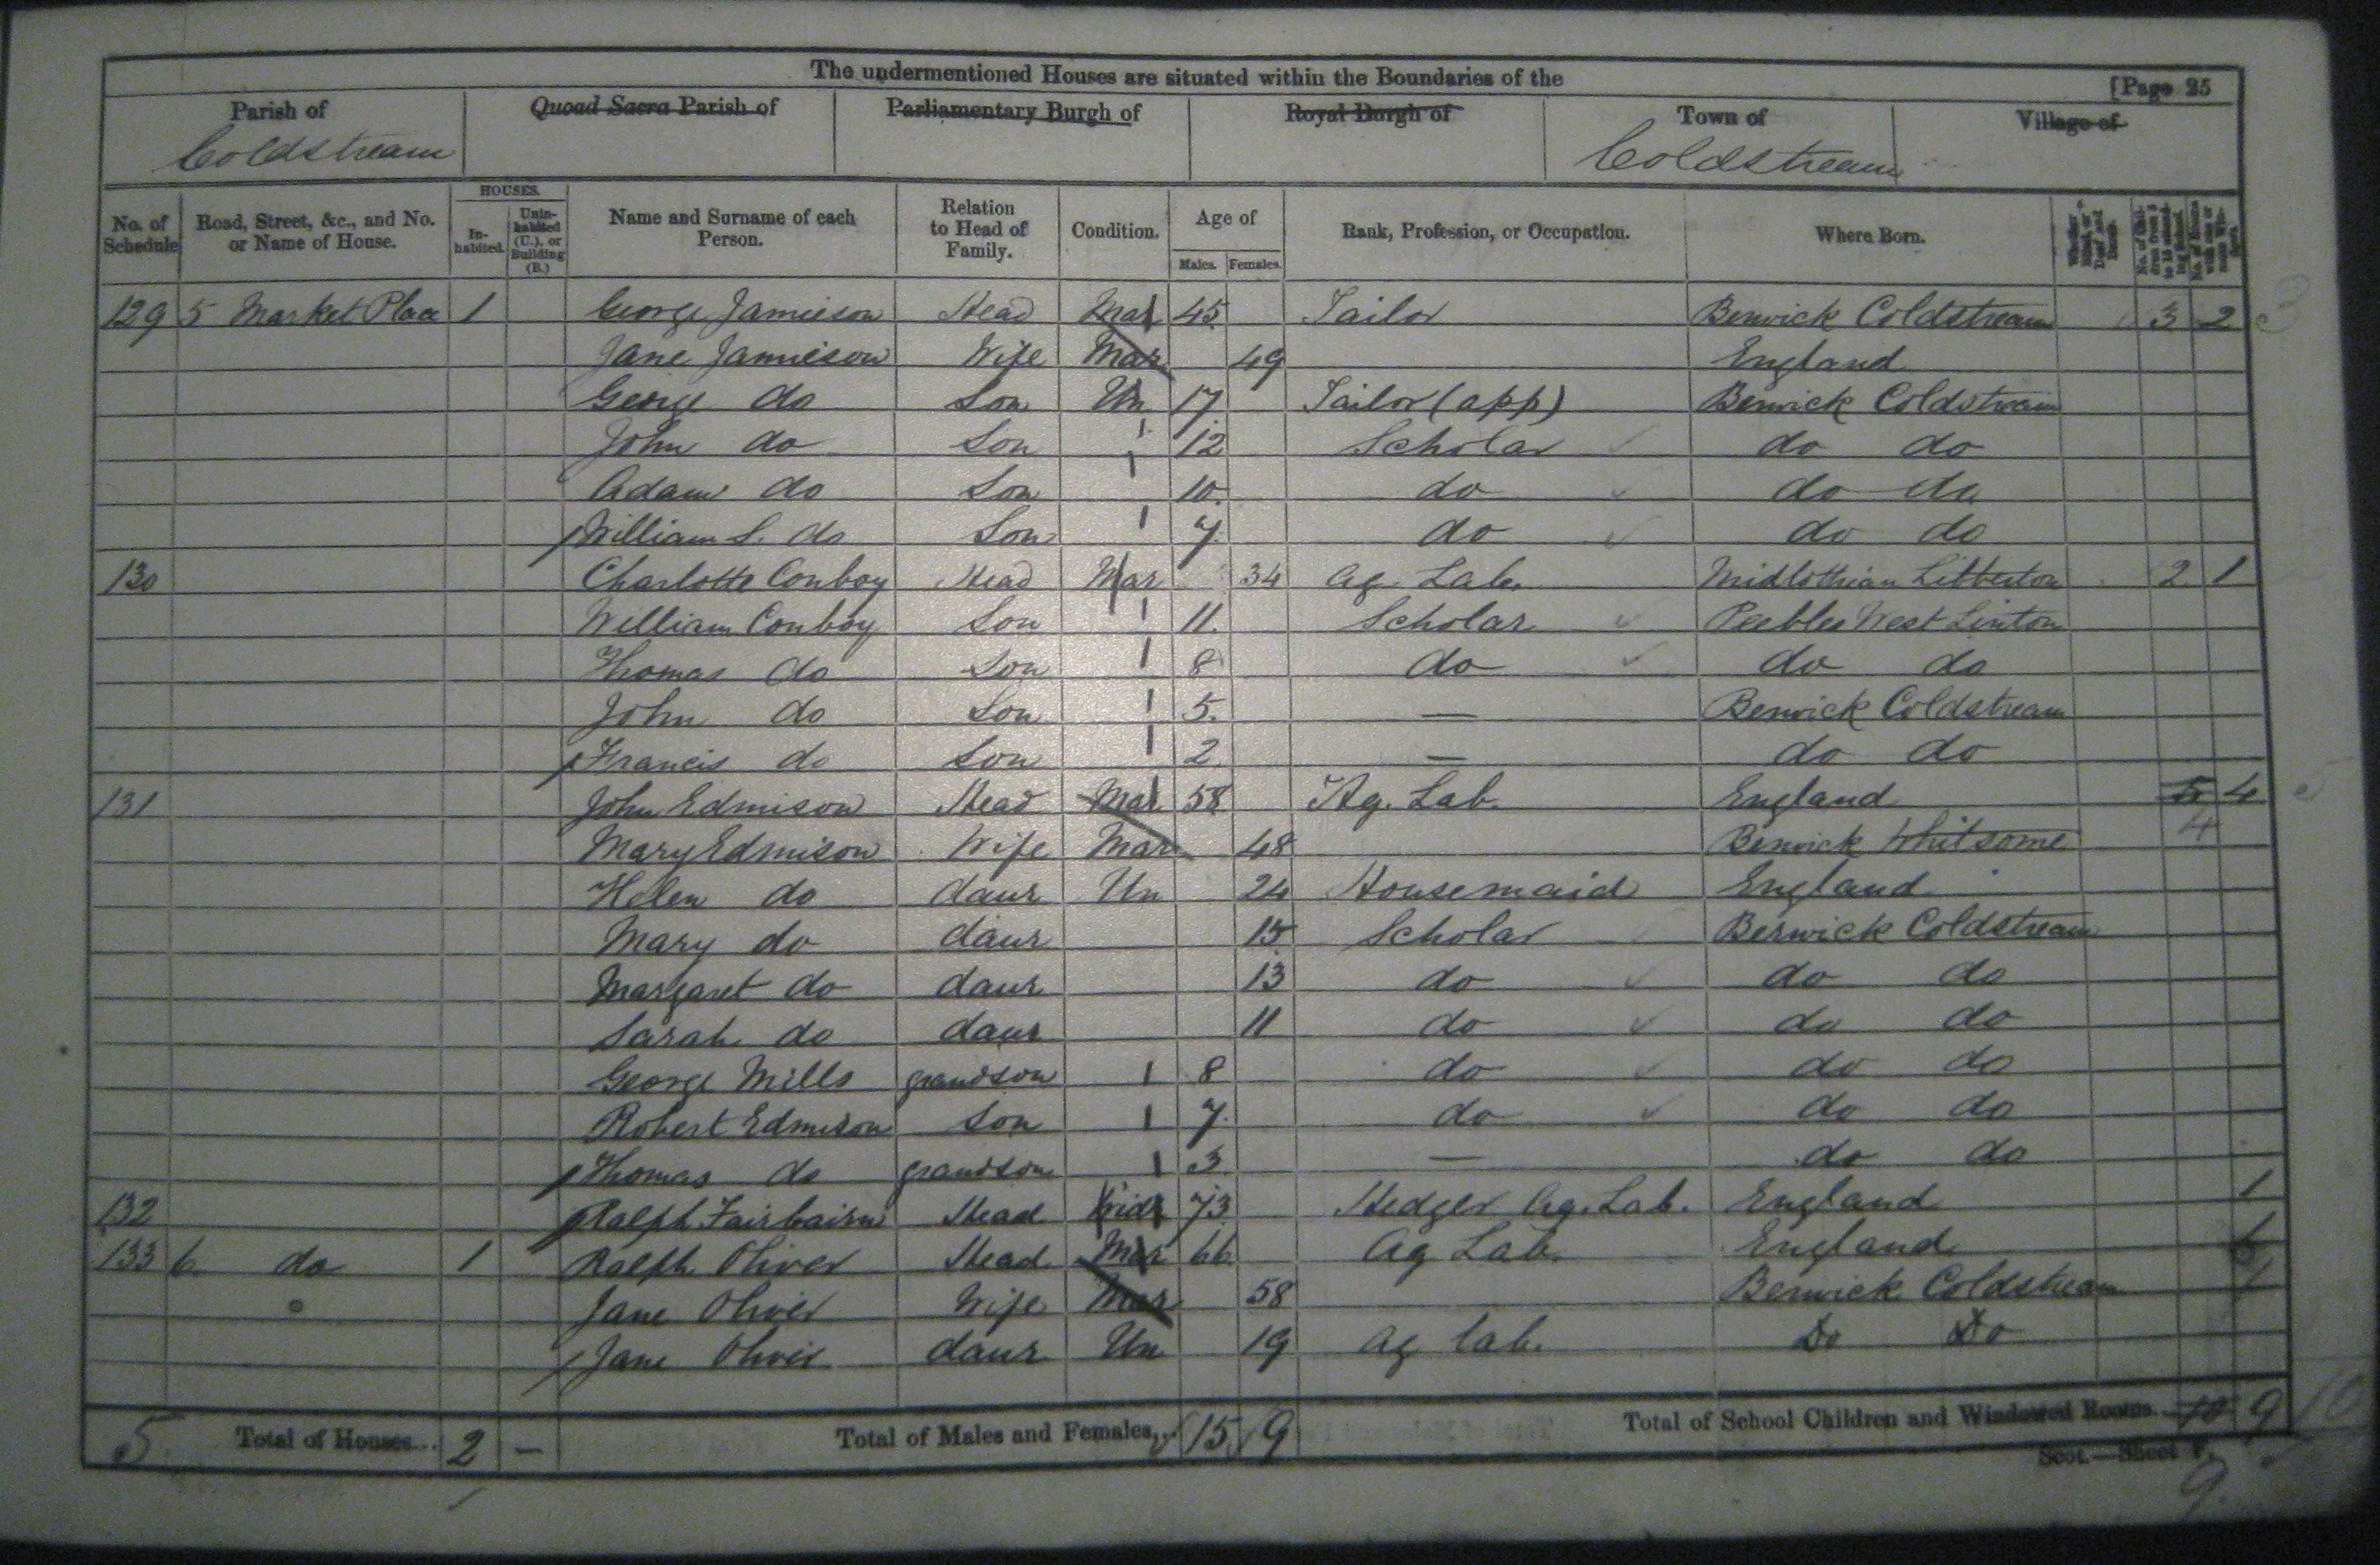 The undermentioned Houses are situated within the Boundaries of the
[Page 25
Parish of Quoad Sacra Parish of Parliamentary Burgh of Royal Burgh of Town of Village of
Coldstream Coldstream
No. of Schedule Road, Street, &c., and No. or Name of House. HOUSES. Inhabited. Uninhabited (U.), or Building (B.) Name and Surname of each Person. Relation to Head of Family. Condition. Age of Males. Females. Rank, Profession, or Occupation. Where Born.
129 5 Market Place 1 George Jamieson Head Mar 45 Tailor Berwick Coldstream 3 2
Jane Jamieson Wife Mar 49 England
George do Son Un 17 Tailor (app) Berwick Coldstream
John do Son 12 Scholar do do
Adam do Son 10 do do do
William S. do Son 7 do do do
130 Charlotte Conboy Head Mar 34 Ag. Lab. Midlothian Libberton 2 1
William Conboy Son 11 Scholar Peebles West Linton
Thomas do Son 8 do do do
John do Son 5 — Berwick Coldstream
Francis do Son 2 — do do
131 John Edmison Head Mar 58 Ag. Lab. England 5 4
Mary Edmison Wife Mar 48 Berwick Whitsome 4
Helen do daur Un 24 Housemaid England
Mary do daur 15 Scholar Berwick Coldstream
Margaret do daur 13 do do do
Sarah do daur 11 do do do
George Mills grandson 8 do do do
Robert Edmison Son 7 do do do
Thomas do grandson 3 — do do
132 Ralph Fairbairn Head Widr 73 Hedger Ag. Lab. England 1
133 6 do 1 Ralph Oliver Head Mar 66 Ag Lab. England
Jane Oliver Wife Mar 58 Berwick Coldstream 1
Jane Oliver daur Un 19 Ag lab. Do Do
5 Total of Houses... 2 — Total of Males and Females,... 15 9 Total of School Children and Windowed Rooms 10 9
Scot.—Sheet F.
9